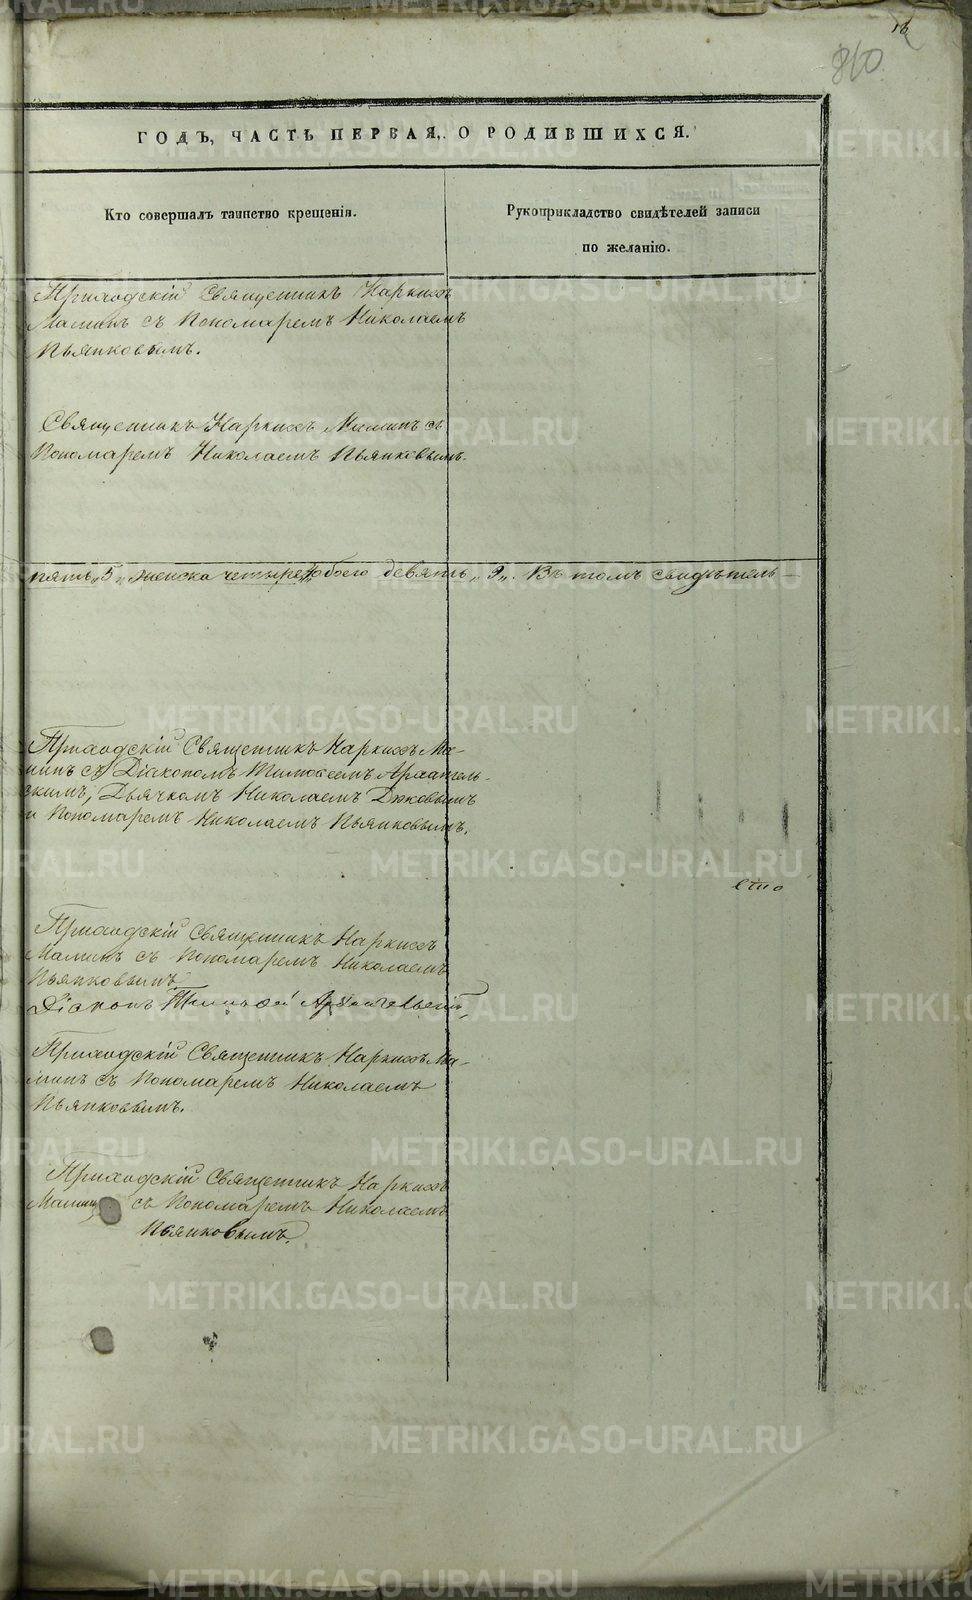 810
ГОДЪ, ЧАСТЬ ПЕРВАЯ, О РОДИВШИХСЯ.
Кто совершалъ таинство крещенія.
Рукоприкладство свидѣтелей записи
по желанію.
Приходскій Священникъ Наркисъ
Маминъ съ Пономаремъ Николаемъ
Пьянковымъ.
Священникъ Наркисъ Маминъ съ
Пономаремъ Николаемъ Пьянковымъ.
пять „5„ женска четыре обоего девять „9„. Въ томъ свидѣтель-
Приходскій Священникъ Наркисъ Ма-
минъ съ Діакономъ Тимоѳеемъ
скимъ, Дьячкомъ Николаемъ
и Пономаремъ Николаемъ Пьянковымъ.
Приходскій Священникъ Наркисъ
Маминъ съ Пономаремъ Николаемъ
Пьянковымъ
Діаконъ Тимоѳей
Приходскій Священникъ Наркисъ Ма-
минъ съ Пономаремъ Николаемъ
Пьянковымъ.
Приходскій Священникъ Наркисъ
Маминъ съ Пономаремъ Николаемъ
Пьянковымъ.
METRIKI.GASO-URAL.RU